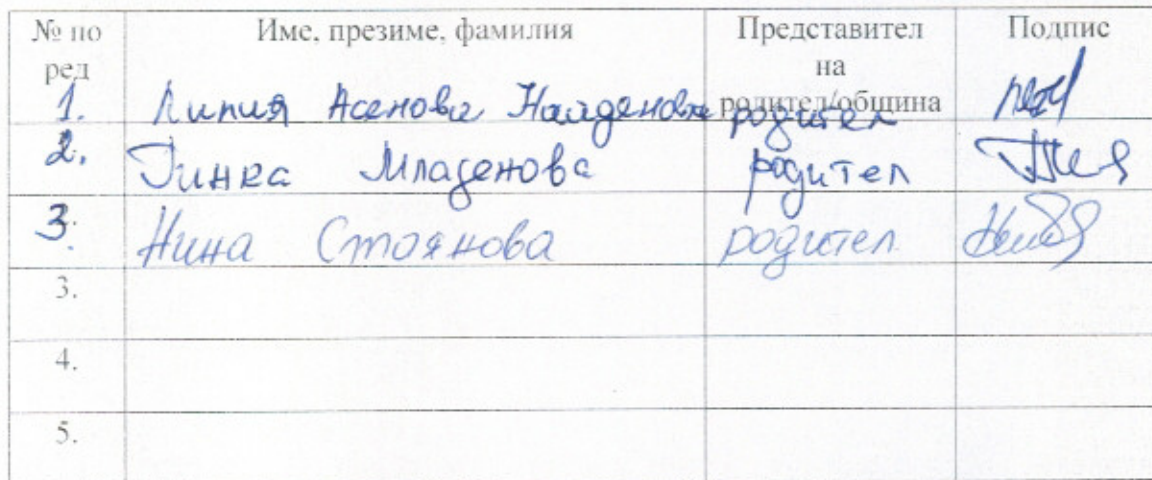 № по ред Име, презиме, фамилия Представител на родител/община Подпис
1. Лилия Асенова Найденова родител
2. Гинка Младенова родител
3. Нина Стоянова родител
3.
4.
5.